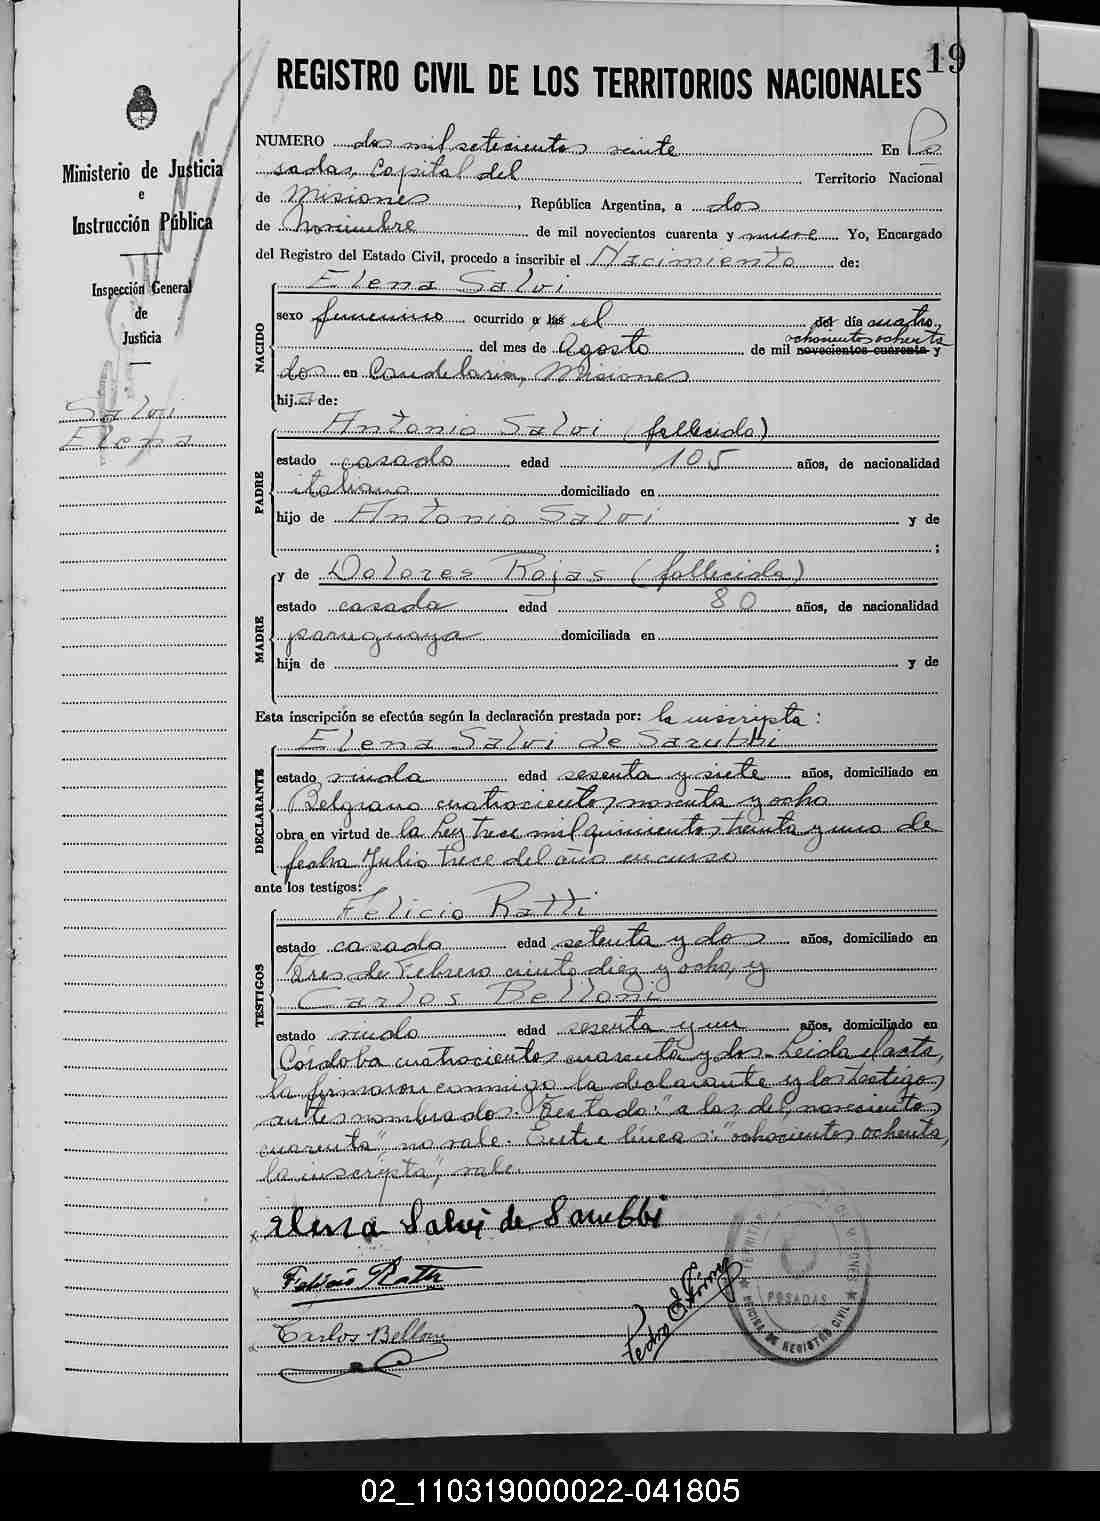 19
REGISTRO CIVIL DE LOS TERRITORIOS NACIONALES
Ministerio de Justicia
e
Instrucción Pública
Inspección General
de
Justicia
Salvi
Elena
NUMERO dos mil setecientos veinte En Po
sadas, Capital del Territorio Nacional
de Misiones, República Argentina, a dos
de Noviembre de mil novecientos cuarenta y nueve Yo, Encargado
del Registro del Estado Civil, procedo a inscribir el Nacimiento de:
NACIDO
Elena Salvi
sexo femenino ocurrido a las el del día cuatro
ochocientos ochenta
del mes de Agosto de mil novecientos cuarenta y
dos en Candelaria, Misiones
hija de:
PADRE
Antonio Salvi (fallecido)
estado casado edad 105 años, de nacionalidad
italiana domiciliado en
hijo de Antonio Salvi y de
;
MADRE
y de Dolores Rojas (fallecida)
estado casada edad 80 años, de nacionalidad
paraguaya domiciliada en
hija de y de
Esta inscripción se efectúa según la declaración prestada por: la inscripta:
DECLARANTE
Elena Salvi de Sarubbi
estado viuda edad sesenta y siete años, domiciliado en
Belgrano cuatrocientos noventa y ocho
obra en virtud de la Ley trece mil quinientos treinta y uno de
fecha Julio trece del año en curso
ante los testigos:
TESTIGOS
Felicio Ratti
estado casado edad setenta y dos años, domiciliado en
Tres de Febrero ciento diez y ocho, y
Carlos Belloni
estado viudo edad sesenta y un años, domiciliado en
Córdoba cuatrocientos cuarenta y dos. Leida el acta,
la firmaron conmigo la declarante y los testigos
antes nombrados. Testado: "a las, del, novecientos
cuarenta", no vale. Entre líneas: "ochocientos ochenta,
la inscripta", vale.
Elena Salvi de Sarubbi
Felicio Ratti
Carlos Belloni
Pedro
POSADAS
OFICINA DE REGISTRO CIVIL
02_110319000022-041805